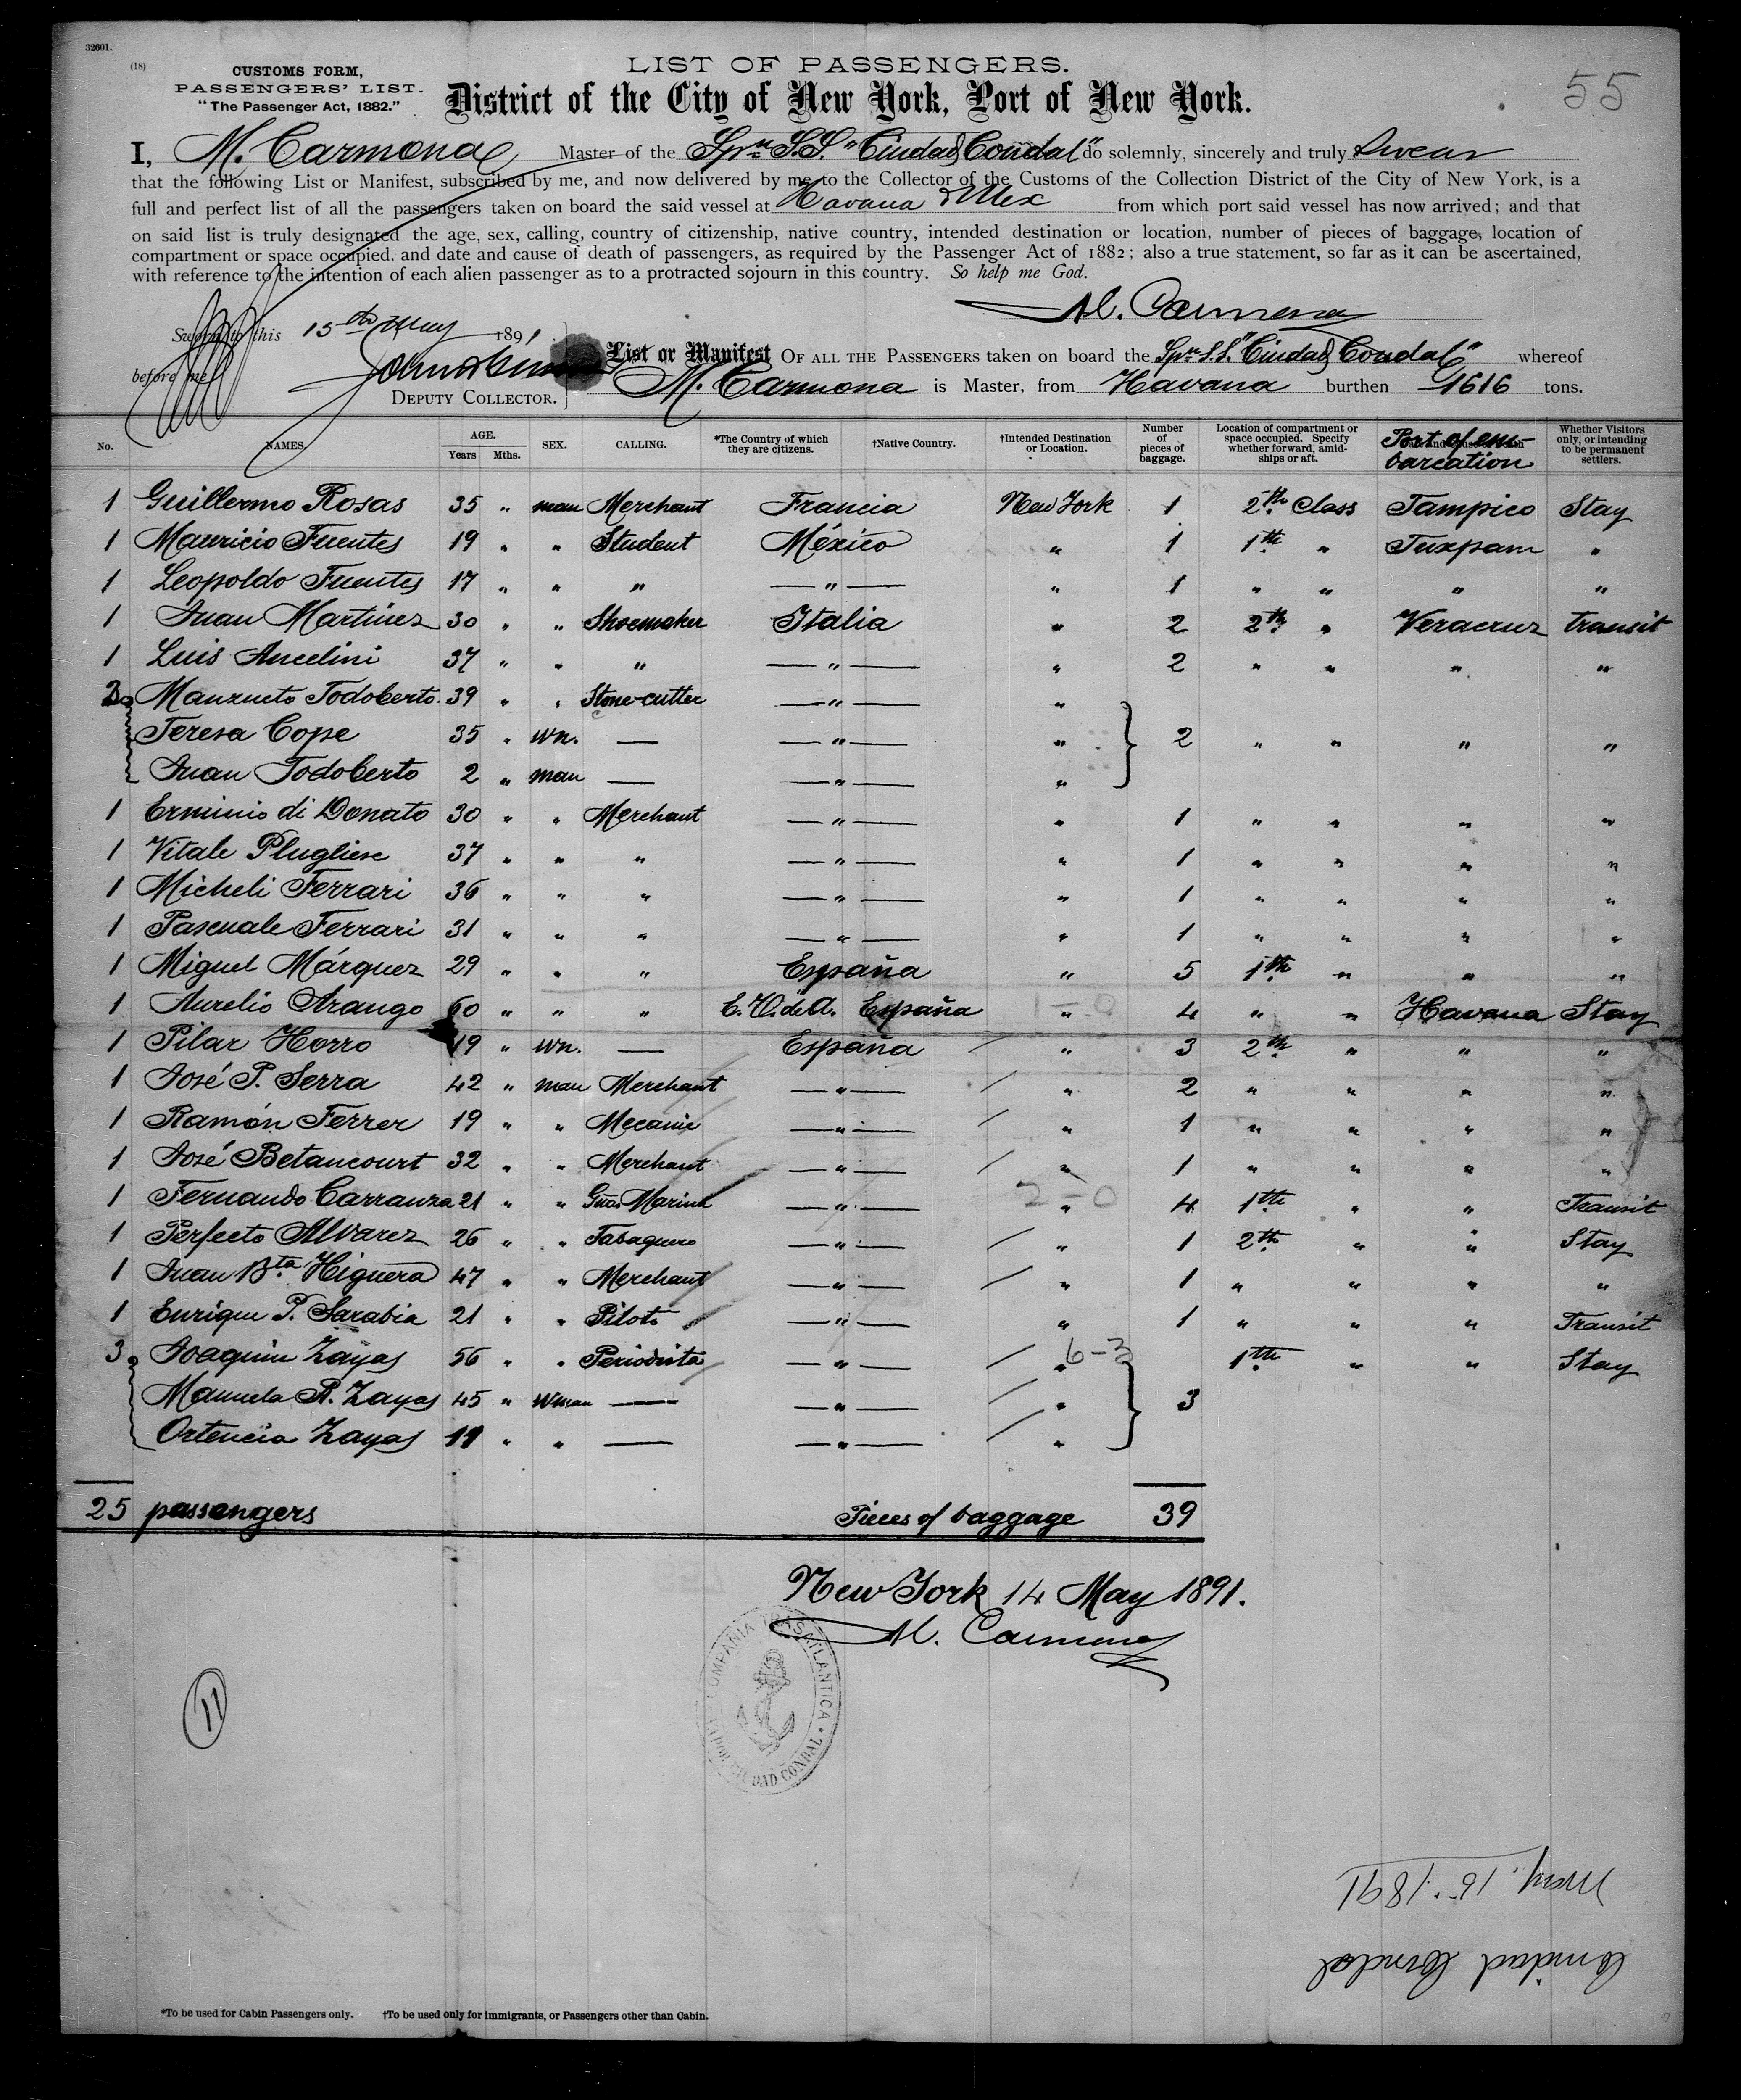 32601.
(18)
CUSTOMS FORM,
PASSENGERS' LIST.
"The Passenger Act, 1882."
LIST OF PASSENGERS.
District of the City of New York, Port of New York.
55
I, M. Carmona Master of the Spn. S.S. "Ciudad Condal" do solemnly, sincerely and truly Swear
that the following List or Manifest, subscribed by me, and now delivered by me to the Collector of the Customs of the Collection District of the City of New York, is a
full and perfect list of all the passengers taken on board the said vessel at Havana & Mex from which port said vessel has now arrived; and that
on said list is truly designated the age, sex, calling, country of citizenship, native country, intended destination or location, number of pieces of baggage, location of
compartment or space occupied, and date and cause of death of passengers, as required by the Passenger Act of 1882; also a true statement, so far as it can be ascertained,
with reference to the intention of each alien passenger as to a protracted sojourn in this country. So help me God.
M. Carmona
Sworn to this 15th May 1891
before me
DEPUTY COLLECTOR.
List or Manifest OF ALL THE PASSENGERS taken on board the Spn. S.S. "Ciudad Condal" whereof
M. Carmona is Master, from Havana burthen 1616 tons.
No. NAMES. AGE. Years Mths. SEX. CALLING. *The Country of which they are citizens. †Native Country. †Intended Destination or Location. Number of pieces of baggage. Location of compartment or space occupied. Specify whether forward, amidships or aft. Port of embarcation Whether Visitors only, or intending to be permanent settlers.
1 Guillermo Rosas 35 " man Merchant Francia New York 1 2th Class Tampico Stay
1 Mauricio Fuentes 19 " " Student México " 1 1th " Tuxpam "
1 Leopoldo Fuentes 17 " " " " " 1 " " " "
1 Juan Martinez 30 " " Shoemaker Italia " 2 2th " Veracruz transit
1 Luis Ancelini 37 " " " " " 2 " " " "
3 Manzueto Todoberto 39 " " Stone-cutter " "
Teresa Cope 35 " wn. — " " 2 " " " "
Juan Todoberto 2 " man — " "
1 Erminio di Donato 30 " " Merchant " " 1 " " " "
1 Vitale Plugliese 37 " " " " " 1 " " " "
1 Micheli Ferrari 36 " " " " " 1 " " " "
1 Pascuale Ferrari 31 " " " " " 1 " " " "
1 Miguel Márquez 29 " " " España " 5 1th " " "
1 Aurelio Arango 60 " " " E. U. de A. España " 1-0 4 " " Havana Stay
1 Pilar Horro 19 " wn. — España " 3 2th " " "
1 José P. Serra 42 " man Merchant " " 2 " " " "
1 Ramón Ferrer 19 " " Mecanic " " 1 " " " "
1 José Betancourt 32 " " Merchant " " 1 " " " "
1 Fernando Carranza 21 " " Marina " " 2-0 4 1th " " Transit
1 Perfecto Alvarez 26 " " Tabaquero " " 1 2th " " Stay
1 Juan Bta Higuera 47 " " Merchant " " 1 " " " "
1 Enrique P. Sarabia 21 " " Piloto " " 1 " " " Transit
3 Joaquin Zayas 56 " " Periodista " " 6-3 1th " " Stay
Manuela R. Zayas 45 " wman — " " 3
Ortencia Zayas 11 " " — " "
25 passengers Pieces of baggage 39
New York 14 May 1891.
M. Carmona
COMPAÑIA TRASATLANTICA
VAPOR CIUDAD CONDAL
11
May. 15. 1891
Ciudad Condal
*To be used for Cabin Passengers only. †To be used only for immigrants, or Passengers other than Cabin.